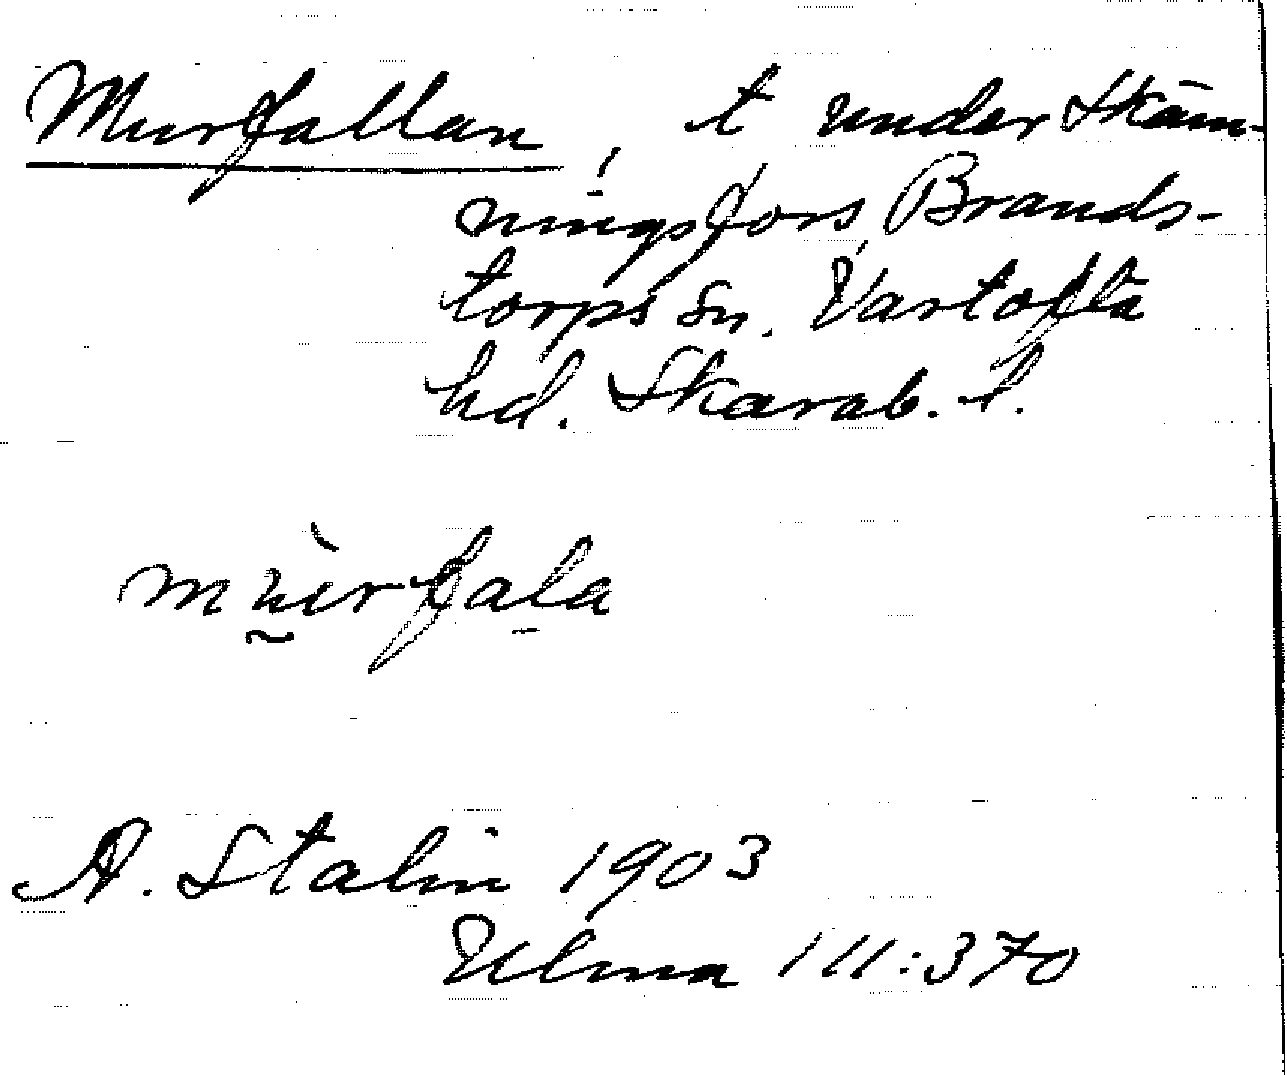 Murfallan, t under Skäm-
ningsfors, Brands-
torps sn. Vartofta
hd. Skarab. l.
mùrfala
A. Stalin 1903
Ulma 111:370